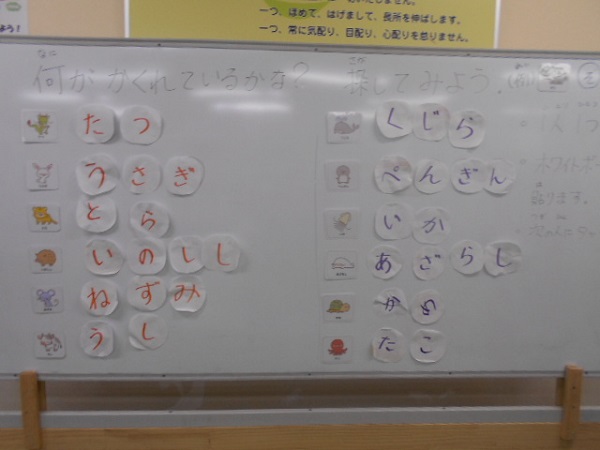 一つ、ほめて、はげまして、長所を伸ばします。
一つ、常に気配り、目配り、心配りを怠りません。
よう！
なに
何がかくれているかな？ 探してみよう。
たつ
うさぎ
とら
いのしし
ねずみ
うし
くじら
ぺんぎん
いか
あざらし
かめ
たこ
ホワイトボー